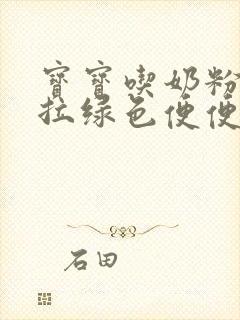 寶寶喫奶粉
拉綠色便便
石田